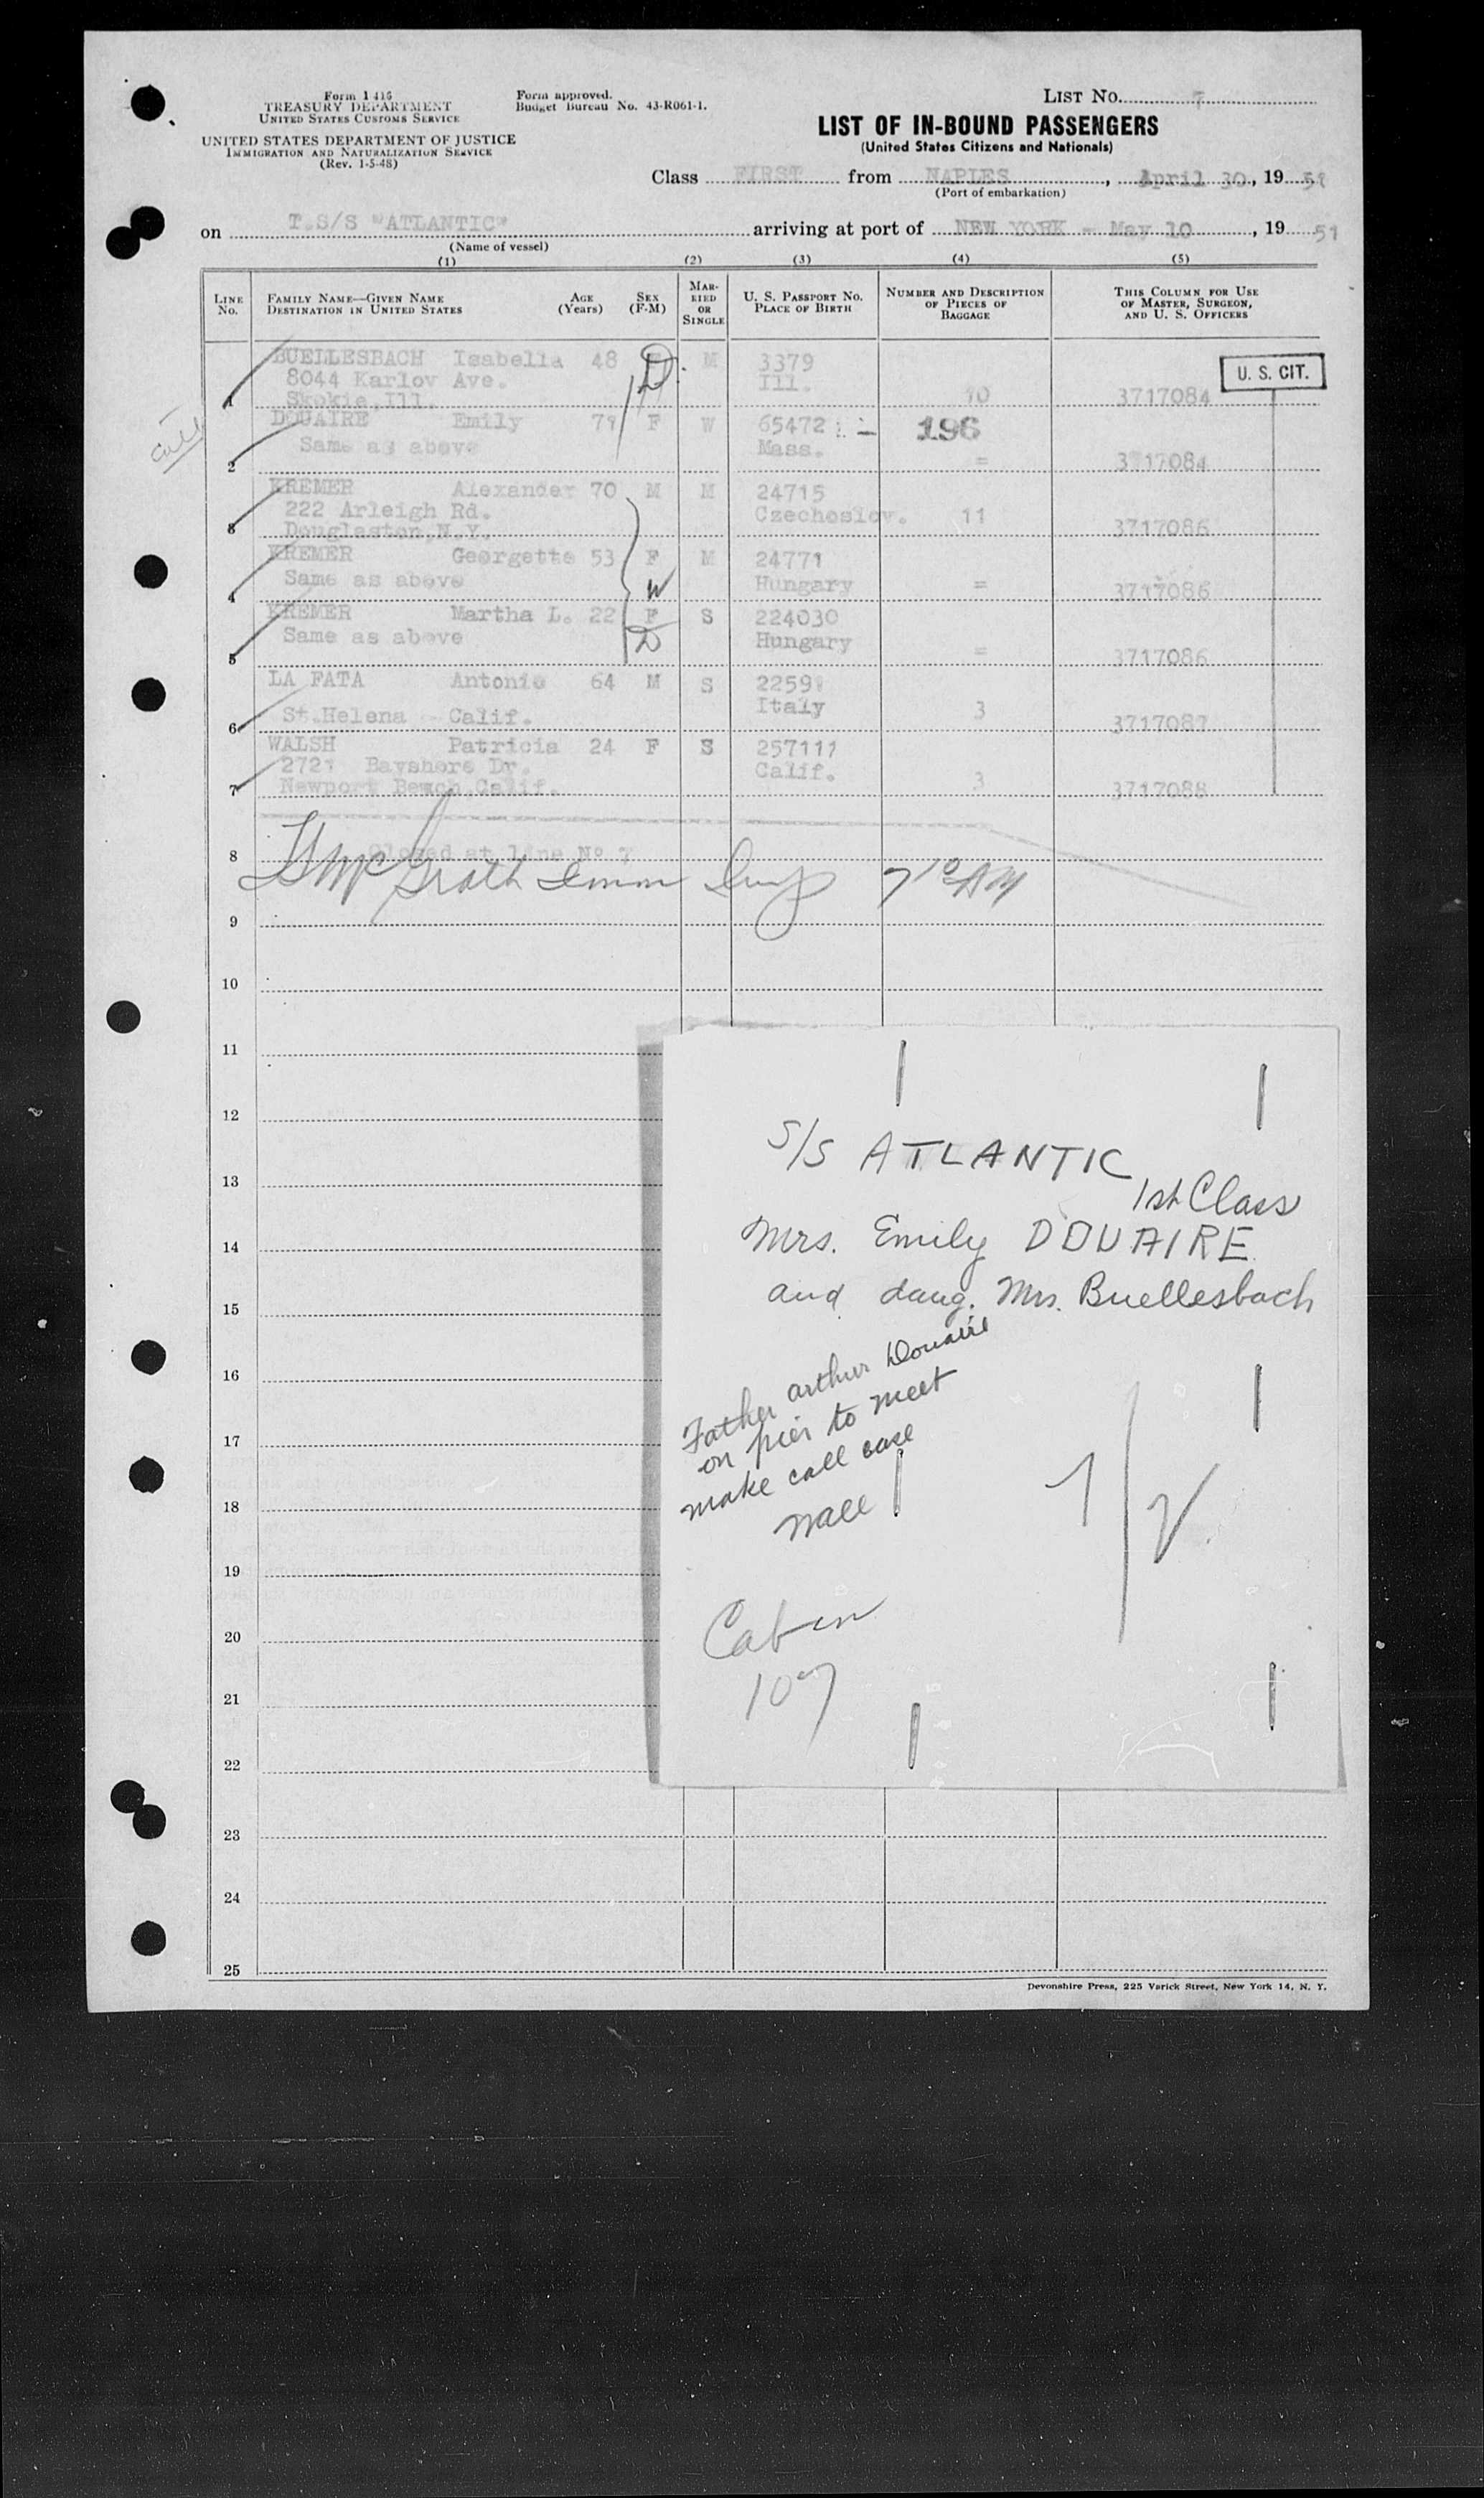 Form I 416
TREASURY DEPARTMENT
UNITED STATES CUSTOMS SERVICE
UNITED STATES DEPARTMENT OF JUSTICE
IMMIGRATION AND NATURALIZATION SERVICE
(Rev. 1-5-48)
Form approved.
Budget Bureau No. 43-R061-1.
LIST No. 7
LIST OF IN-BOUND PASSENGERS
(United States Citizens and Nationals)
Class FIRST from NAPLES, April 30, 1951
(Port of embarkation)
on T.S/S "ATLANTIC" arriving at port of NEW YORK - May 10, 1951
(Name of vessel)
(1) (2) (3) (4) (5)
LINE No. FAMILY NAME—GIVEN NAME DESTINATION IN UNITED STATES AGE (Years) SEX (F-M) MARRIED OR SINGLE U. S. PASSPORT NO. PLACE OF BIRTH NUMBER AND DESCRIPTION OF PIECES OF BAGGAGE THIS COLUMN FOR USE OF MASTER, SURGEON, AND U. S. OFFICERS
U. S. CIT.
BUELLESBACH Isabella 48 D. M 3379
8044 Karlov Ave. Ill.
1 Skokie, Ill. 10 3717084
call
DOUAIRE Emily 71 F W 65472 196
Same as above Mass.
2 = 3717084
KREMER Alexander 70 M M 24715
222 Arleigh Rd. Czechoslov. 11
3 Douglaston, N.Y. 3717086
KREMER Georgette 53 F M 24771
Same as above W Hungary =
4 3717086
KREMER Martha L. 22 F S 224030
Same as above D Hungary
5 = 3717086
LA FATA Antonio 64 M S 22591
Italy
6 St.Helena - Calif. 3 3717087
WALSH Patricia 24 F S 257111
2721 Bayshore Dr. Calif.
7 Newport Beach, Calif. 3 3717088
8 Closed at line No 7
McGrath Imm Insp 7 10 AM
9
10
11
12
13
14
15
16
17
18
19
20
21
22
23
24
25
S/S ATLANTIC
1st Class
Mrs. Emily DOUAIRE
and daug. Mrs. Buellesbach
Father arthur Douaire
on pier to meet
make call case
Cabin
107
1/2
Devonshire Press, 225 Varick Street, New York 14, N. Y.